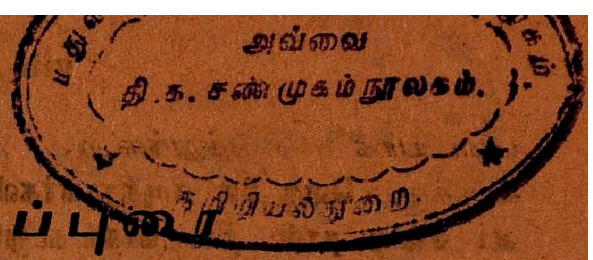 அவ்வை
தி.க. சண்முகம் நூலகம்.
தமிழியல்துறை.
ப்புரை